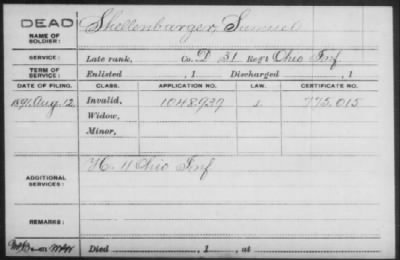 DEAD Shellenbarger, Samuel
NAME OF SOLDIER:
SERVICE: Late rank, Co. D 31 Reg't Ohio Inf
TERM OF SERVICE: Enlisted , 1 Discharged , 1
DATE OF FILING. CLASS. APPLICATION NO. LAW. CERTIFICATE NO.
1891 Aug. 12. Invalid, 1048939 775,015
Widow,
Minor,
ADDITIONAL SERVICES: H. 11 Ohio Inf
REMARKS:
Died , 1 , at